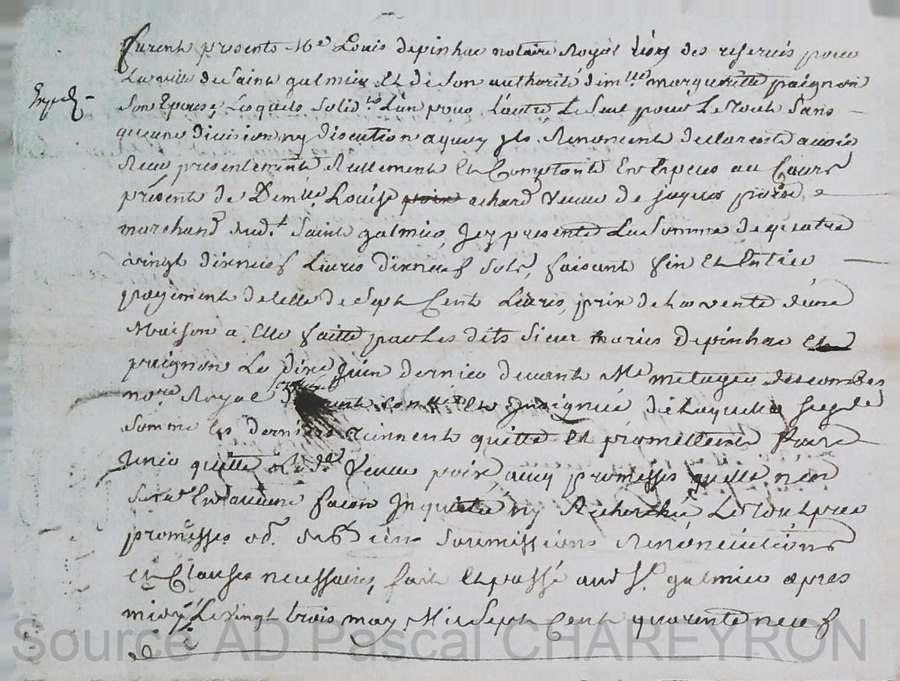 furent presents Me Louis depinhac notaire Royal des reservés pour
La ville de Saint galmier Et de Son authorité demlle margueritte praignon
Exped.
Son Epouse, Lesquels solidt. L'un pour Lautre, Le Seul pour Le tout Sans
aucune division ny discution a quoy ils Renoncent declarent avoir
Receu presentement Reellement Et Comptant En Especes au Cours
présent de Demlle Louise achard veuve de jaques poire
marchand dudt Saint galmier, Icy presente La Somme de quatre
vingt dixneuf Livres dixneuf sols, faisant fin Et Entier
payement de Celle de Sept Cent Livres, prix de La vente d'une
Maison a Elle faitte par Les dits Sieur maries Depinhac Et
praignon Le Juin dernier devant Me metayer descombes
nore Royal Et Insignué de Laquelle
Somme Les derniers tiennent quitte Et promettent faire
tenir quitte Veuve poire, avec promesse quelle n'en
sera En aucune facon Inquietée ny Recherchée Le tout par
promesses obl. soumissions Renonciations
et Clauses necessaires, fait Et passé audt St. galmier apres
midy Le vingt trois may Mil Sept Cent quarente neuf
Source AD Pascal CHAREYRON